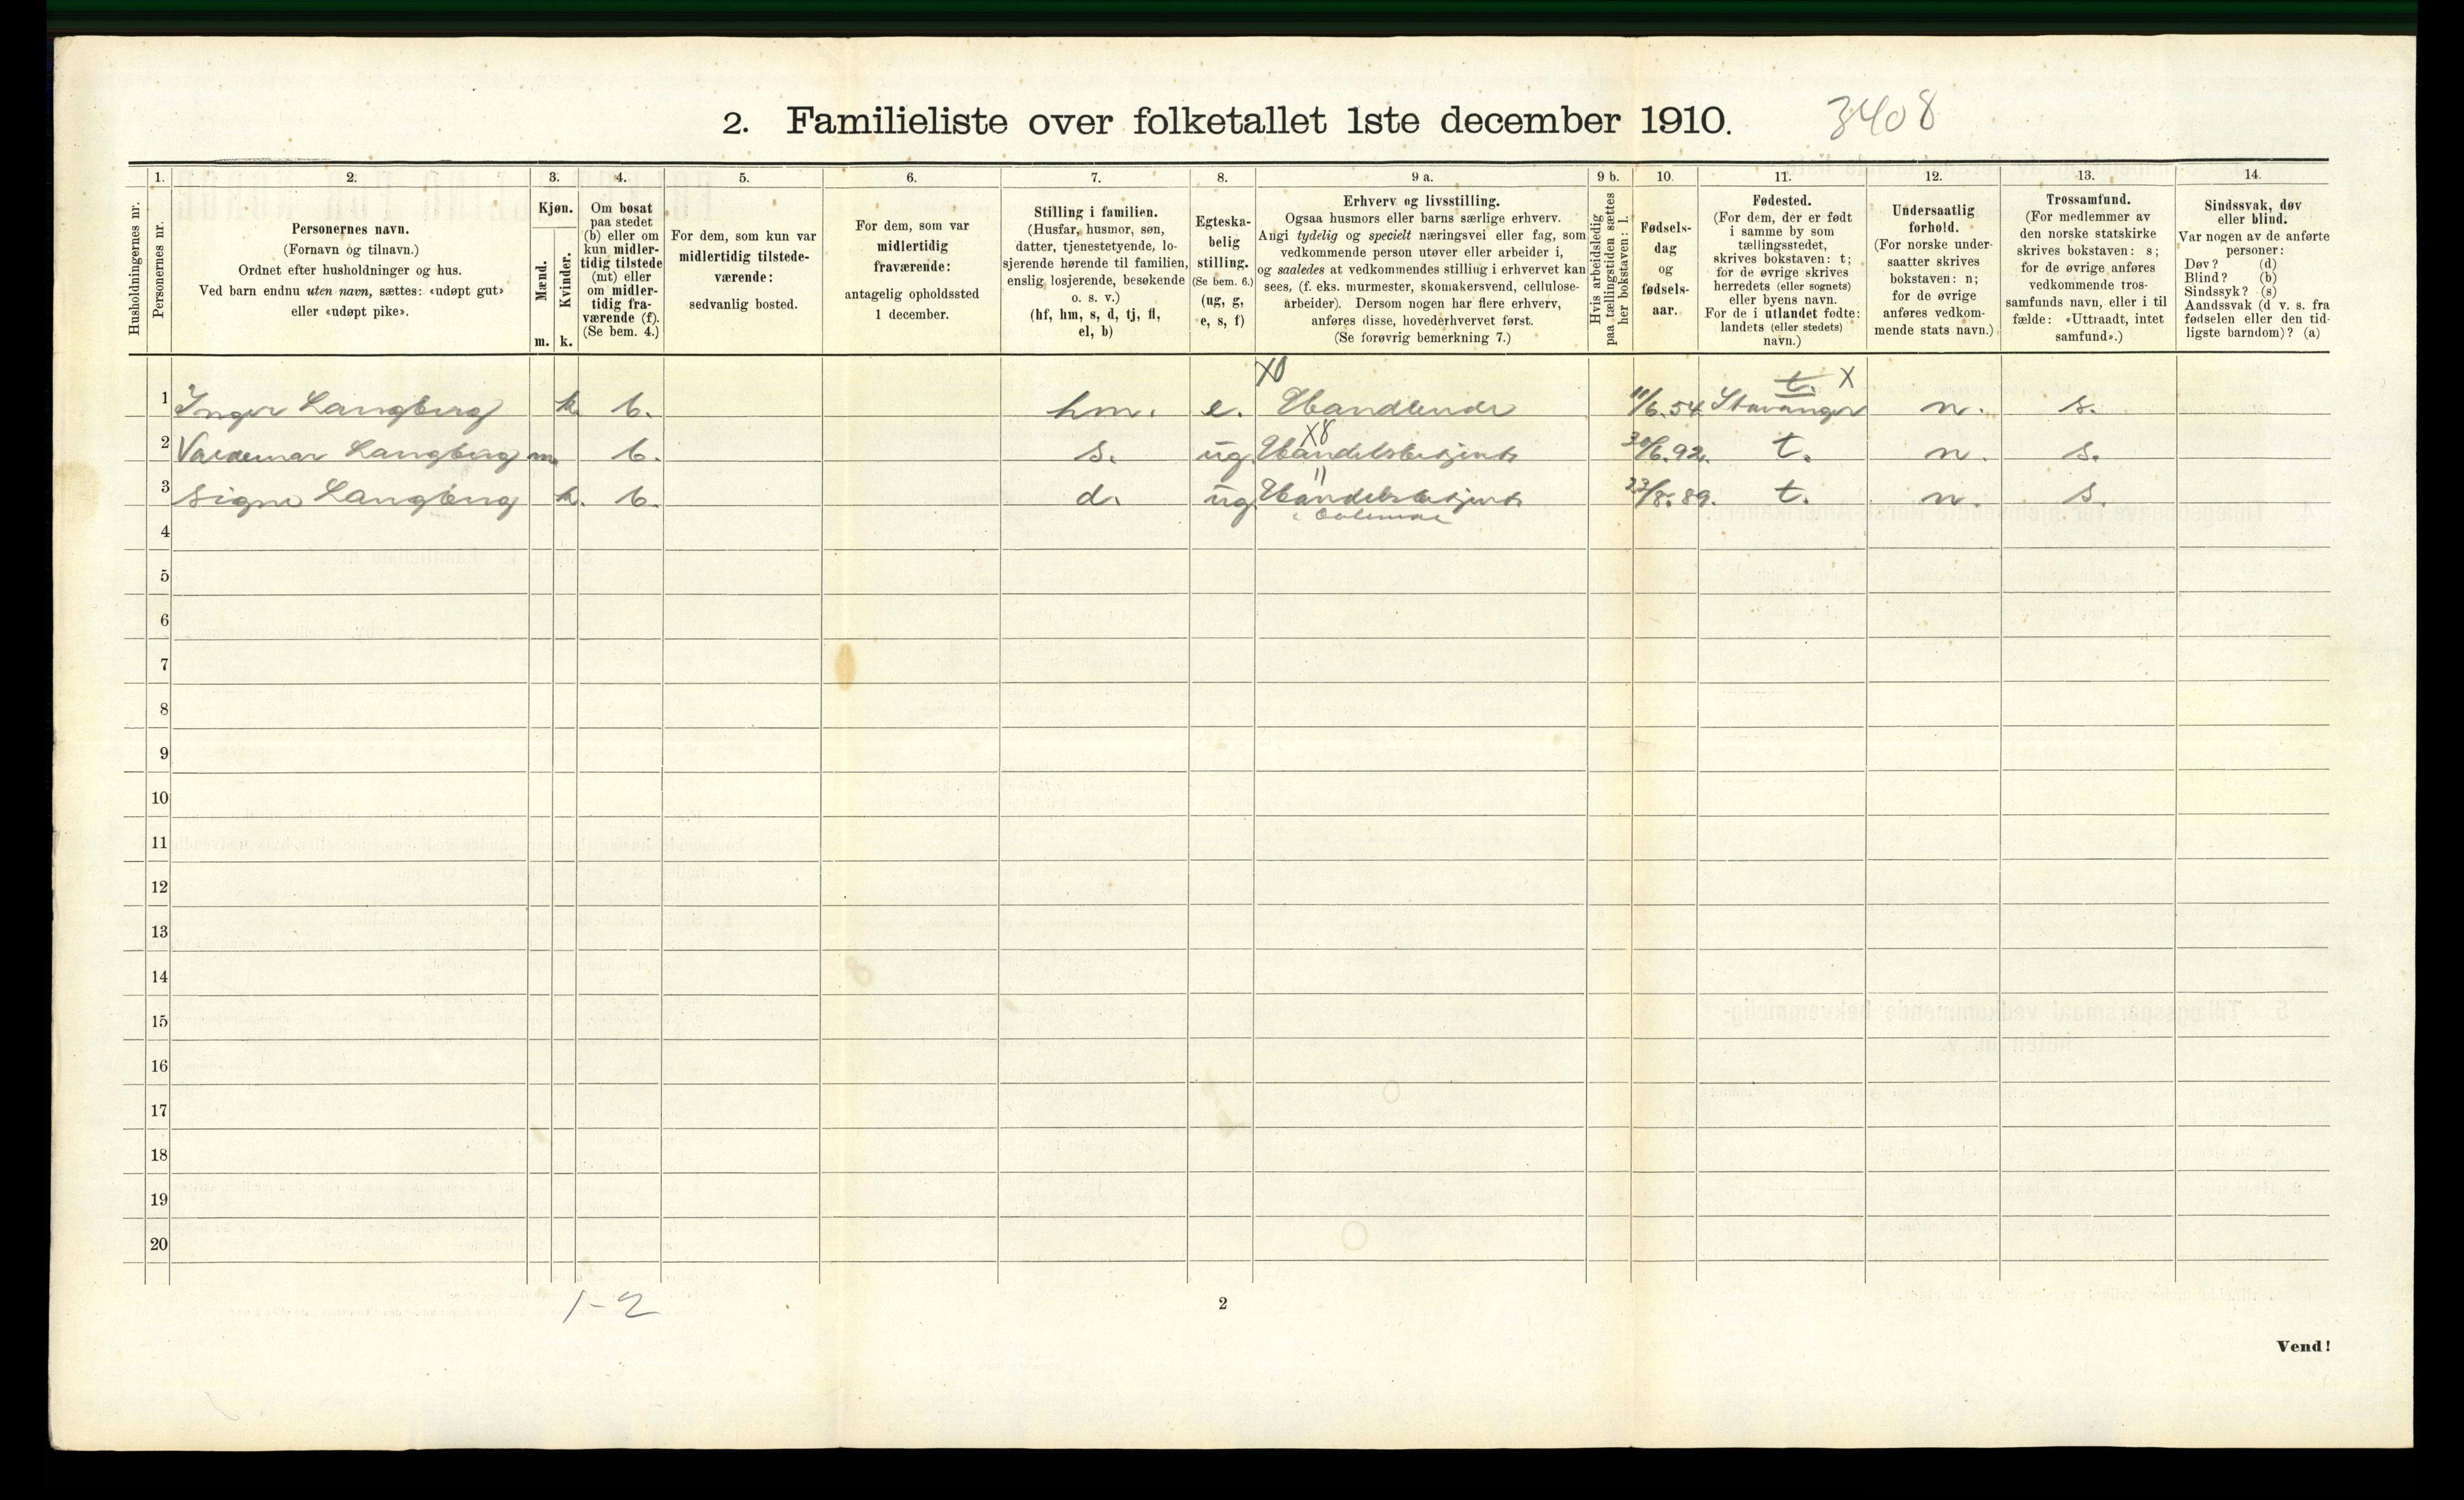 2. Familieliste over folketallet 1ste december 1910. 3408
Husholdningernes nr.
1. Personernes nr.
2. Personernes navn.
(Fornavn og tilnavn.)
Ordnet efter husholdninger og hus.
Ved barn endnu uten navn, sættes: «udøpt gut»
eller «udøpt pike».
3. Kjøn.
Mænd. m.
Kvinder. k.
4. Om bosat
paa stedet
(b) eller om
kun midler-
tidig tilstede
(mt) eller
om midler-
tidig fra-
værende (f).
(Se bem. 4.)
5. For dem, som kun var
midlertidig tilstede-
værende:
sedvanlig bosted.
6. For dem, som var
midlertidig
fraværende:
antagelig opholdssted
1 december.
7. Stilling i familien.
(Husfar, husmor, søn,
datter, tjenestetyende, lo-
sjerende hørende til familien,
enslig losjerende, besøkende
o. s. v.)
(hf, hm, s, d, tj, fl,
el, b)
8. Egteska-
belig
stilling.
(Se bem. 6.)
(ug, g,
e, s, f)
9 a. Erhverv og livsstilling.
Ogsaa husmors eller barns særlige erhverv.
Angi tydelig og specielt næringsvei eller fag, som
vedkommende person utøver eller arbeider i,
og saaledes at vedkommendes stilling i erhvervet kan
sees, (f. eks. murmester, skomakersvend, cellulose-
arbeider). Dersom nogen har flere erhverv,
anføres disse, hovederhvervet først.
(Se forøvrig bemerkning 7.)
9 b. Hvis arbeidsledig
paa tællingstiden sættes
her bokstaven: l.
10. Fødsels-
dag
og
fødsels-
aar.
11. Fødested.
(For dem, der er født
i samme by som
tællingsstedet,
skrives bokstaven: t;
for de øvrige skrives
herredets (eller sognets)
eller byens navn.
For de i utlandet fødte:
landets (eller stedets)
navn.)
12. Undersaatlig
forhold.
(For norske under-
saatter skrives
bokstaven: n;
for de øvrige
anføres vedkom-
mende stats navn.)
13. Trossamfund.
(For medlemmer av
den norske statskirke
skrives bokstaven: s;
for de øvrige anføres
vedkommende tros-
samfunds navn, eller i til
fælde: «Uttraadt, intet
samfund».)
14. Sindssvak, døv
eller blind.
Var nogen av de anførte
personer:
Døv? (d)
Blind? (b)
Sindssyk? (s)
Aandssvak (d v. s. fra
fødselen eller den tid-
ligste barndom)? (a)
X0 t. X
1 Inger Langberg k. b. hm. e. Handlende 11/6.54 Stavanger n. s.
X8
2 Valdemar Langberg m. b. s. ug. Handelsbetjent 30/6.92. t. n. s.
"
3 Signe Langberg k. b. d. ug. Handelsbetjent 23/8.89. t. n s.
4
5
6
7
8
9
10
11
12
13
14
15
16
17
18
19
20
1-2
2
Vend!